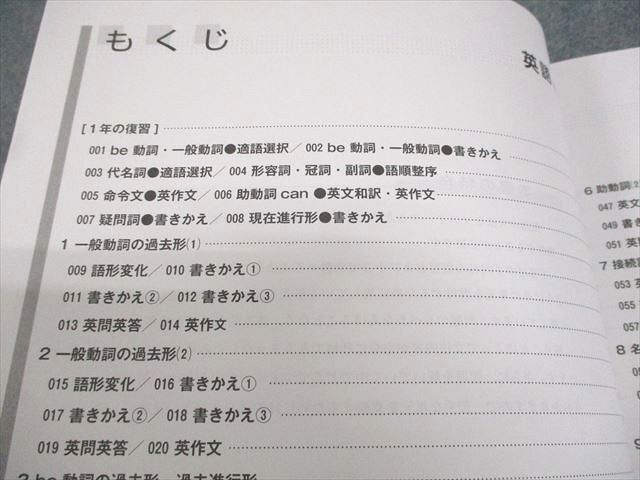 もくじ
英語
[1年の復習]
001 be 動詞・一般動詞●適語選択/002 be 動詞・一般動詞●書きかえ
003 代名詞●適語選択/004 形容詞・冠詞・副詞●語順整序
005 命令文●英作文/006 助動詞 can ●英文和訳・英作文
007 疑問詞●書きかえ/008 現在進行形●書きかえ
1 一般動詞の過去形(1)
009 語形変化/010 書きかえ①
011 書きかえ②/012 書きかえ③
013 英問英答/014 英作文
2 一般動詞の過去形(2)
015 語形変化/016 書きかえ①
017 書きかえ②/018 書きかえ③
019 英問英答/020 英作文
3 be 動詞の過去形・過去進行形
6 助動詞(2)
047 英文
049 書き
051 英
7 接続詞
053 英
055
057
8 名
05